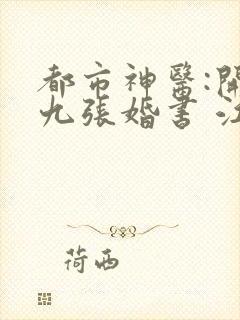 都市神醫:開
九張婚書 江
荷西